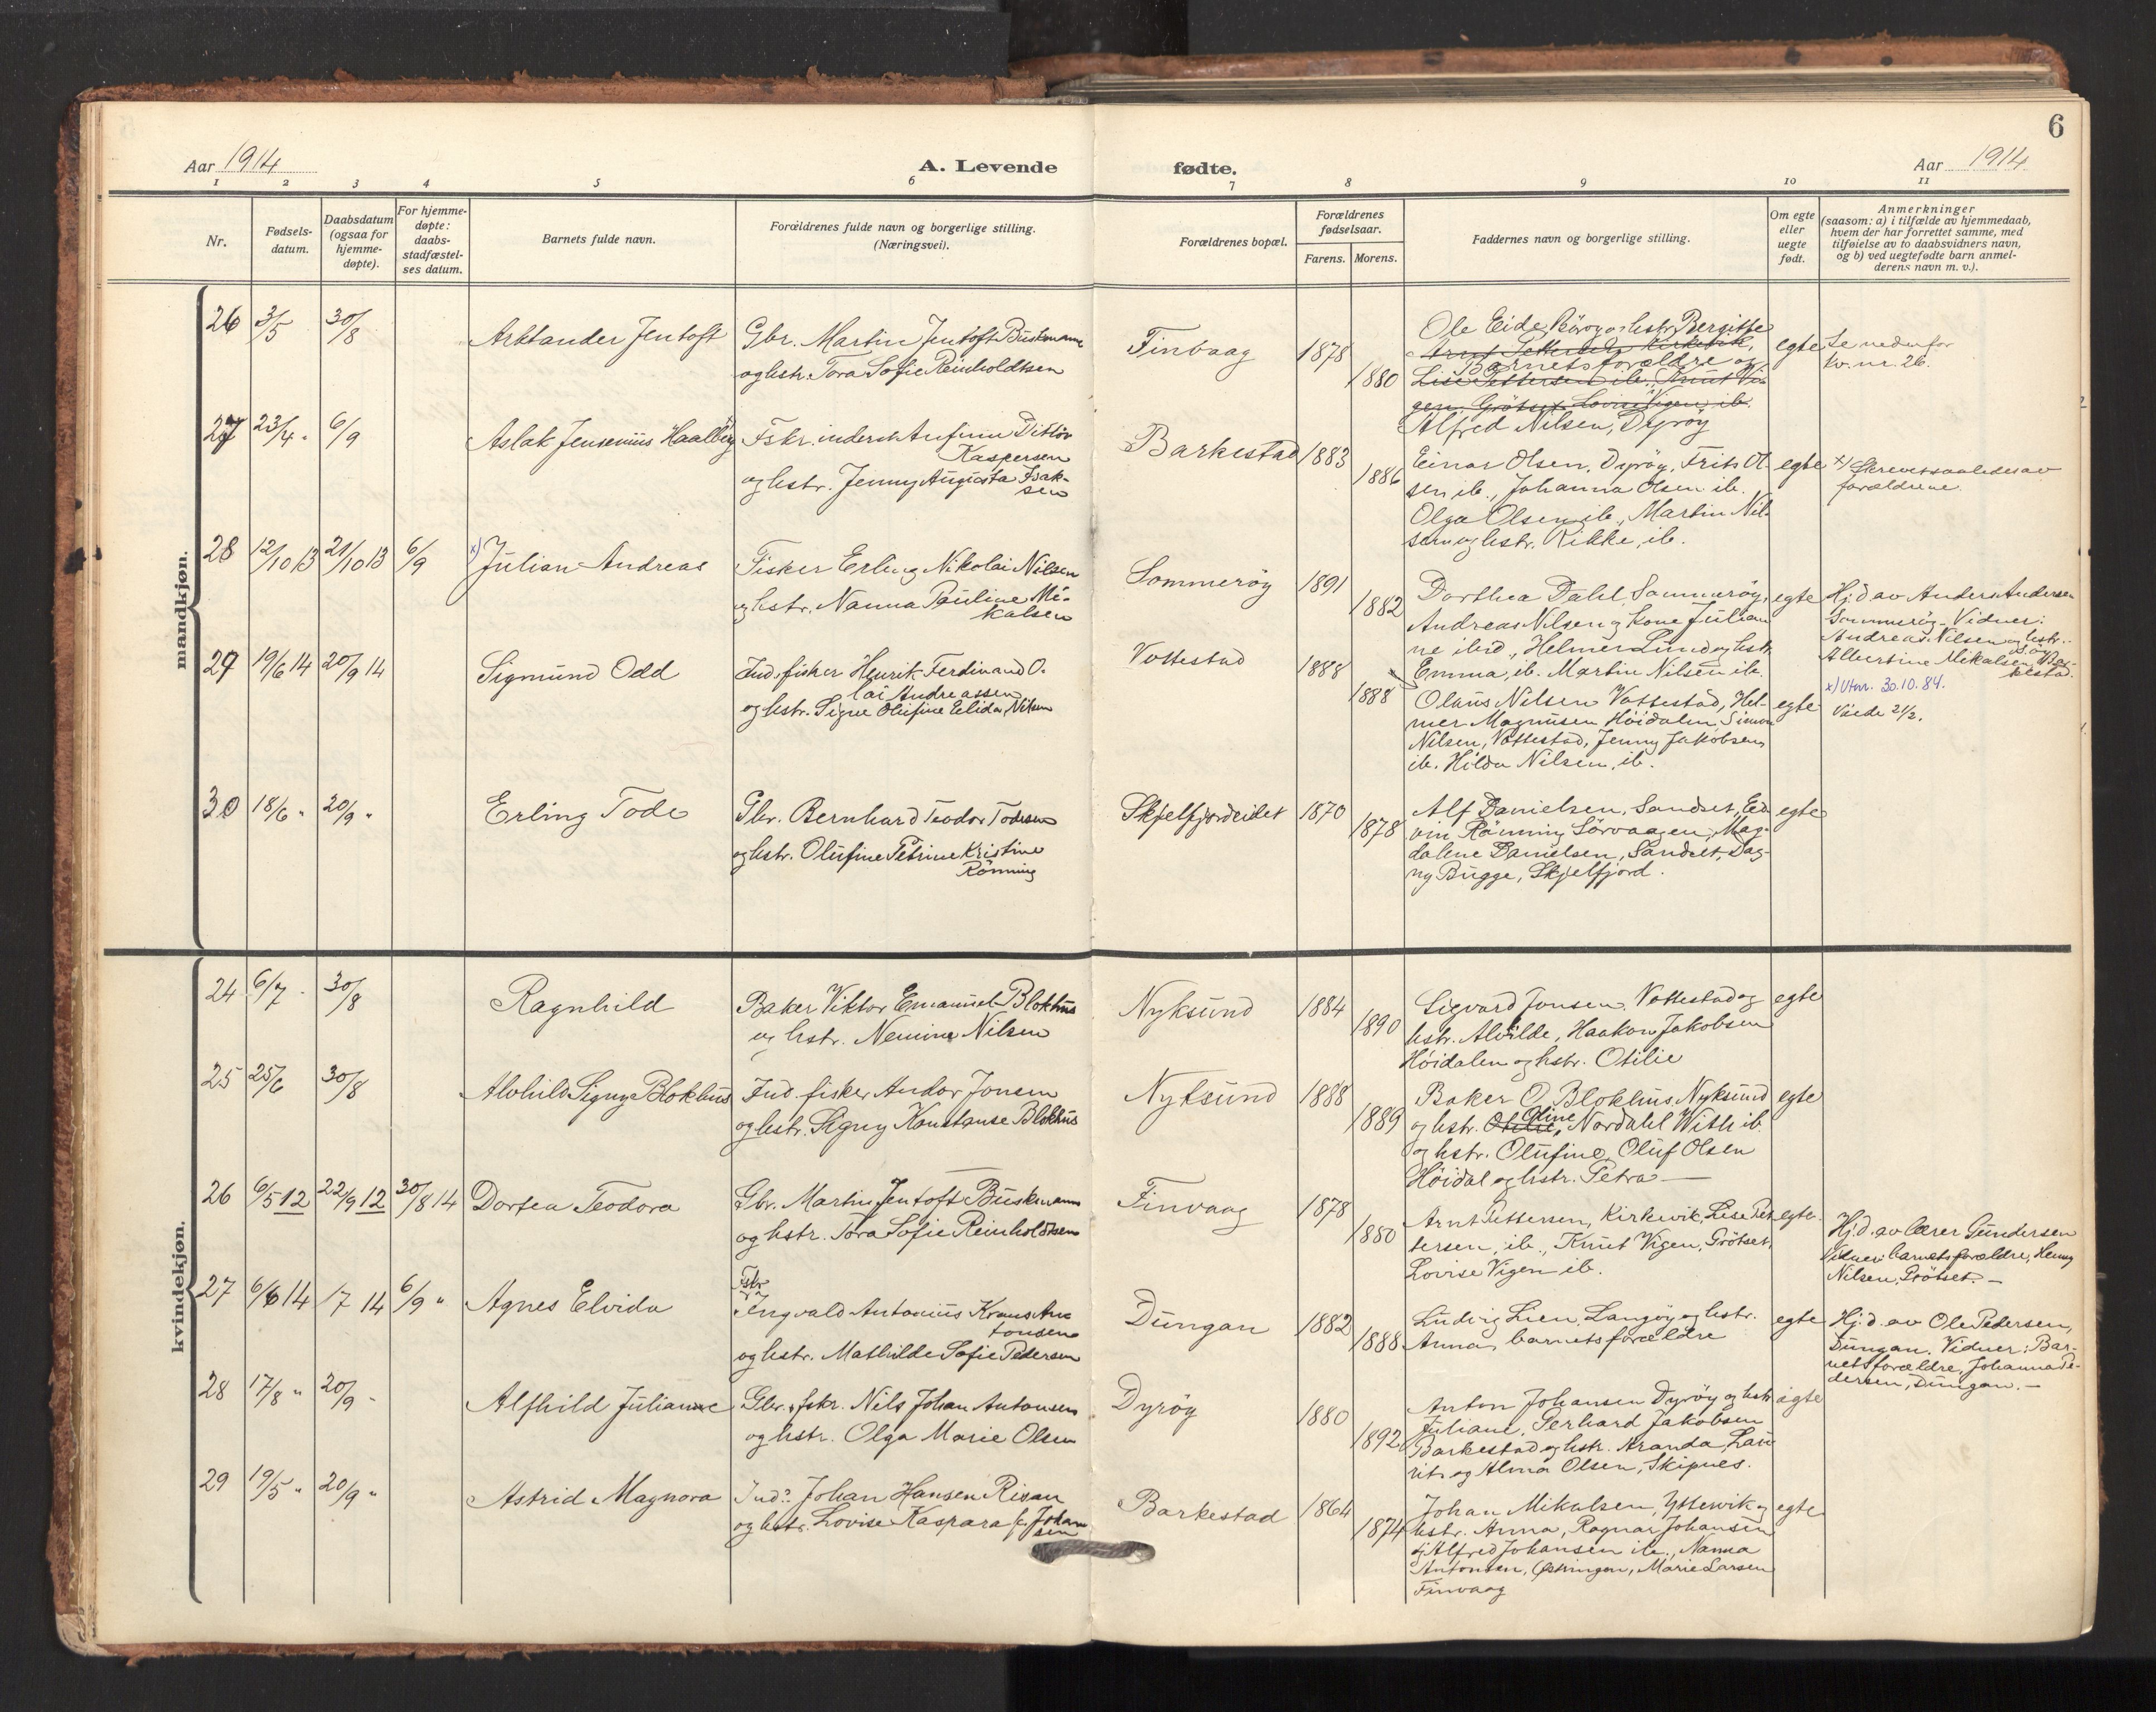 6
Aar 1914
A. Levende
fødte.
Aar 1914
1 2 3 4 5 6 7 8 9 10 11
Nr.
Fødsels-
datum.
Daabsdatum
(ogsaa for
hjemme-
døpte).
For hjemme-
døpte:
daabs-
stadfæstel-
ses datum.
Barnets fulde navn.
Forældrenes fulde navn og borgerlige stilling.
(Næringsvei).
Forældrenes bopæl.
Forældrenes
fødselsaar.
Farens. Morens.
Faddernes navn og borgerlige stilling.
Om egte
eller
uegte
født.
Anmerkninger
(saasom: a) i tilfælde av hjemmedaab,
hvem der har forrettet samme, med
tilføielse av to daabsvidners navn,
og b) ved uegtefødte barn anmel-
derens navn m. v.).
mandkjøn.
26 3/5 30/8
Arktander Jentoft
Gbr. Martin Jentoft Buskmann
og hstr. Tora Sofie Reinholdtsen
Finvaag
1878
1880
Ole Eide, og hstr. Bergitte
Arnt Pettersen Kirkevik,
Barnets forældre og
Lise Pettersen ib. Knut Vi-
gen, Grötset Lovise Vigen ib.
Alfred Nilsen, Dyrøy
egte
Se nedenfor
kv. nr. 26.
27 23/4 " 6/9
Aslak Jensenius Haalberg
Fskr. inderst Anfinn Ditlöv
Kaspersen
og hstr. Jenny Augusta Isak-
sen
Barkestad
1883
1886
Einar Olsen, Dyröy, Frits Ol-
sen ib., Johanna Olsen ib.
Olga Olsen ib., Martin Nil-
sen og hstr. Rikke, ib.
egte
x) Skrevet saaledes av
forældrene.
28 12/10 13 21/10 13 6/9
x) Julian Andreas
Fisker Erling Nikolai Nilsen
og hstr. Nanna Pauline Mi-
kalsen
Sommeröy
1891
1882
Dorthea Dahl, Sommeröy,
Andreas Nilsen og kone Julian
ne ibid, Helmer Lund og hstr.
Emma, ib. Martin Nilsen ib.
egte
Hj.d av Anders Andersen
Sommeröy. Vidner:
Andreas Nilsen og hstr.
Albertine Mikalsen, Bar-
kestad.
x) Utm. 30.10.84.
29 19/6 14 20/9 14
Sigmund Odd
Ind. fisker Henrik Ferdinand O-
lai Andreassen
og hstr. Signe Olufine Elida Nilsen
Vottestad
1888
1888
Olaus Nilsen Vottestad, Hel-
mer Magnusen Höidalen, Simon
Nilsen, Vottestad, Jenny Jakobsen,
ib. Hilda Nilsen, ib.
egte
Viede 2/2.
30 18/6 " 20/9 "
Erling Tode
Gbr. Bernhard Teodor Todesen
og hstr. Olufine Petrine Kristine
Rönning
Skjelfjordeidet
1870
1878
Alf Danielsen, Sandset, Ed-
vin Rönning Sörvaagen, Mag-
dalene Danielsen, Sandset, Dag-
ny Bugge, Skjelfjord.
egte
kvindekjøn.
24 6/7 " 30/8
Ragnhild
Baker Viktor Emanuel Blokhus
og hstr. Nemine Nilsen
Nyksund
1884
1890
Sigvard Jonsen, Vottestad og
hstr. Alvilde, Haakon Jakobsen
Höidalen og hstr. Otilie
egte
25 25/6 30/8
Alvhild Signy Blokhus
Ind. fisker Andor Jonsen
og hstr. Signy Konstanse Blokhus
Nyksund
1888
1889
Baker O. Blokhus, Nyksund
og hstr. Otilie, Oline Nordahl With ib.
og hstr. Olufine, Oluf Olsen
Höidal og hstr. Petra —
egte
26 6/5 12 22/9 12 30/8 14
Dortea Teodora
Gbr. Martin Jentoft Buskmann
og hstr. Tora Sofie Reinholdtsen
Finvaag
1878
1880
Arnt Pettersen, Kirkevik, Lise Pet-
tersen, ib., Knut Vigen, Grötset,
Lovise Vigen ib.
egte
Hj.d. av lærer Gundersen
Vidner: barnets forældre, Henny
Nilsen, Grötset. —
27 6/6 14 /7 14 6/9 "
Agnes Elvida
Fskr.
Ingvald Antonius Kraus An-
tonsen
og hstr. Mathilde Sofie Pedersen
Dungan
1882
1888
Ludvig Lien, Langöy og hstr.
Anna, barnets forældre
egte
Hj.d. av Ole Pedersen,
Dungan. Vidner: Bar-
nets forældre, Johanna Pe-
dersen, Dungan. —
28 17/8 " 20/9 "
Alfhild Julianne
Gbr. fskr. Nils Johan Antonsen
og hstr. Olga Marie Olsen
Dyröy
1880
1892
Anton Johansen Dyröy og hstr.
Juliane, Gerhard Jakobsen
Barkestad og hstr. Aranda, Lau-
rits og Alma Olsen, Skipnes.
egte
29 19/5 " 20/9 "
Astrid Magnora
Ind. Johan Hansen Risan
og hstr. Lovise Kaspara f. Johan-
sen
Barkestad
1864
1874
Johan Mikalsen, Yttervik og
hstr. Anna, Ragnar Johansen
og Alfred Johansen ib., Nanna
Antonsen, Marie Larsen
Finvaag
egte